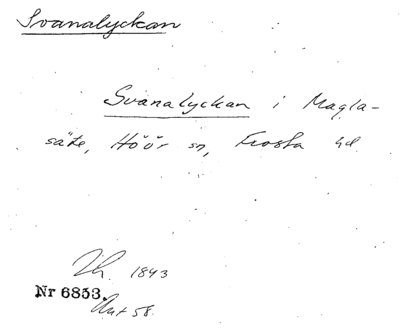 Svanalyckan
Svanalyckan i Magla-
säte, Höör sn, Frosta hd.
Th. 1843
Nr 6853.
Ant 58.